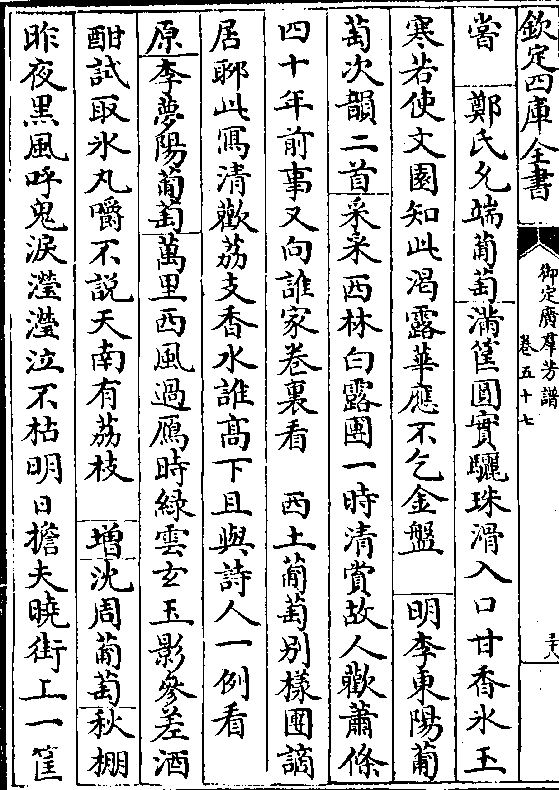 欽定四庫全書
御定廣羣芳譜
卷五十七
三十八
嘗　鄭氏允端葡萄滿筐圓實驪珠滑入口甘香氷玉
寒若使文園知此渇露華應不乞金盤　明李東陽葡
萄次韻二首采采西林白露團一時清賞故人歡蕭條
四十年前事又向誰家卷裏看　西土葡萄别樣團謫
居聊此寫清歡荔支香水誰髙下且與詩人一例看
原李夢陽葡萄萬里西風過鴈時緑雲玄玉影參差酒
酣試取氷丸嚼不説天南有荔枝　增沈周葡萄秋棚
昨夜黒風呼鬼淚瀅瀅泣不枯明日擔夫曉街上一筐